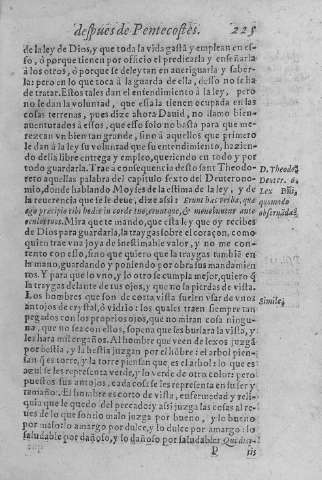 despues de Pentecostes. 225
de la ley de Dios, y que toda la vida gastã y emplean en es-
so, ó porque tienen por officio el predicarla y enseñarla
à los otros, ó porque se deleytan en aueriguarla y saber-
la: pero en lo que toca à la guarda de ella, desso no se ha
de tratar. Estos tales dan el entendimiento à la ley, pero
no le dan la voluntad, que essa la tienen ocupada en las
cosas terrenas, pues dize ahora Dauid, no llamo bien-
auenturados à estos, que esso solo no basta para que me-
rezcan vn bien tan grande, sino à aquellos que primero
le dan à la ley su voluntad que su entendimiento, hazien-
do della libre entrega y empleo, queriendo en todo y por
todo guardarla. Trae a consequencia desto sant Theodo-
reto aquellas palabra del capitulo sexto del Deuterono-
mio, donde hablando Moyses de la estima de la ley, y de
la reuerencia que se le deue, dize assi: Erunt hæc verba, quæ
ego præcipio tibi hodie in corde tuo,
oculos tuos. Mira que te mando, que esta ley que oy recibes
de Dios para guardarla, la traygas sobre el coraçon, como
quien trae vna joya de inestimable valor, y no me con-
tento con esso, sino que quiero que la traygas tambiẽ en
la mano, guardando y poniendo por obra sus mandamien-
tos. Y para que lo vno, y lo otro se cumpla mejor, quiero q̃
la traygas delante de tus ojos, y que no la pierdas de vista.
Los hombres que son de corta vista suelen vsar de vnos
antojos de crystal, ó vidrio: los quales traen siempre tan
pegados con los proprios ojos, que no miran cosa ningu-
na, que no sea con ellos, so pena que les burlara la vista, y
les hara mil engaños. Al hombre que veen de lexos juzgã
por bestia, y la bestia juzgan por el hõbre: el arbol pien-
san q̃ es torre, y la torre piensan que es el arbol: lo que es
azul se les representa verde, y lo verde de otro color: pero
puestos sus antojos, cada cosa se les representa en su ser y
tamaño. El hombre es corto de vista, enfermedad y reli-
quia que le quedo del peccado: y assi juzga las cosas al re-
ues de lo que son: lo malo juzga por bueno, y lo bueno
por malo: lo amargo por dulce, y lo dulce por amargo: lo
saludable por dañoso, y lo dañoso por saludable.
P
D. Theodo.
Deuter. 6.
Lex Dei,
quomodo
obseruãda.
Simile.